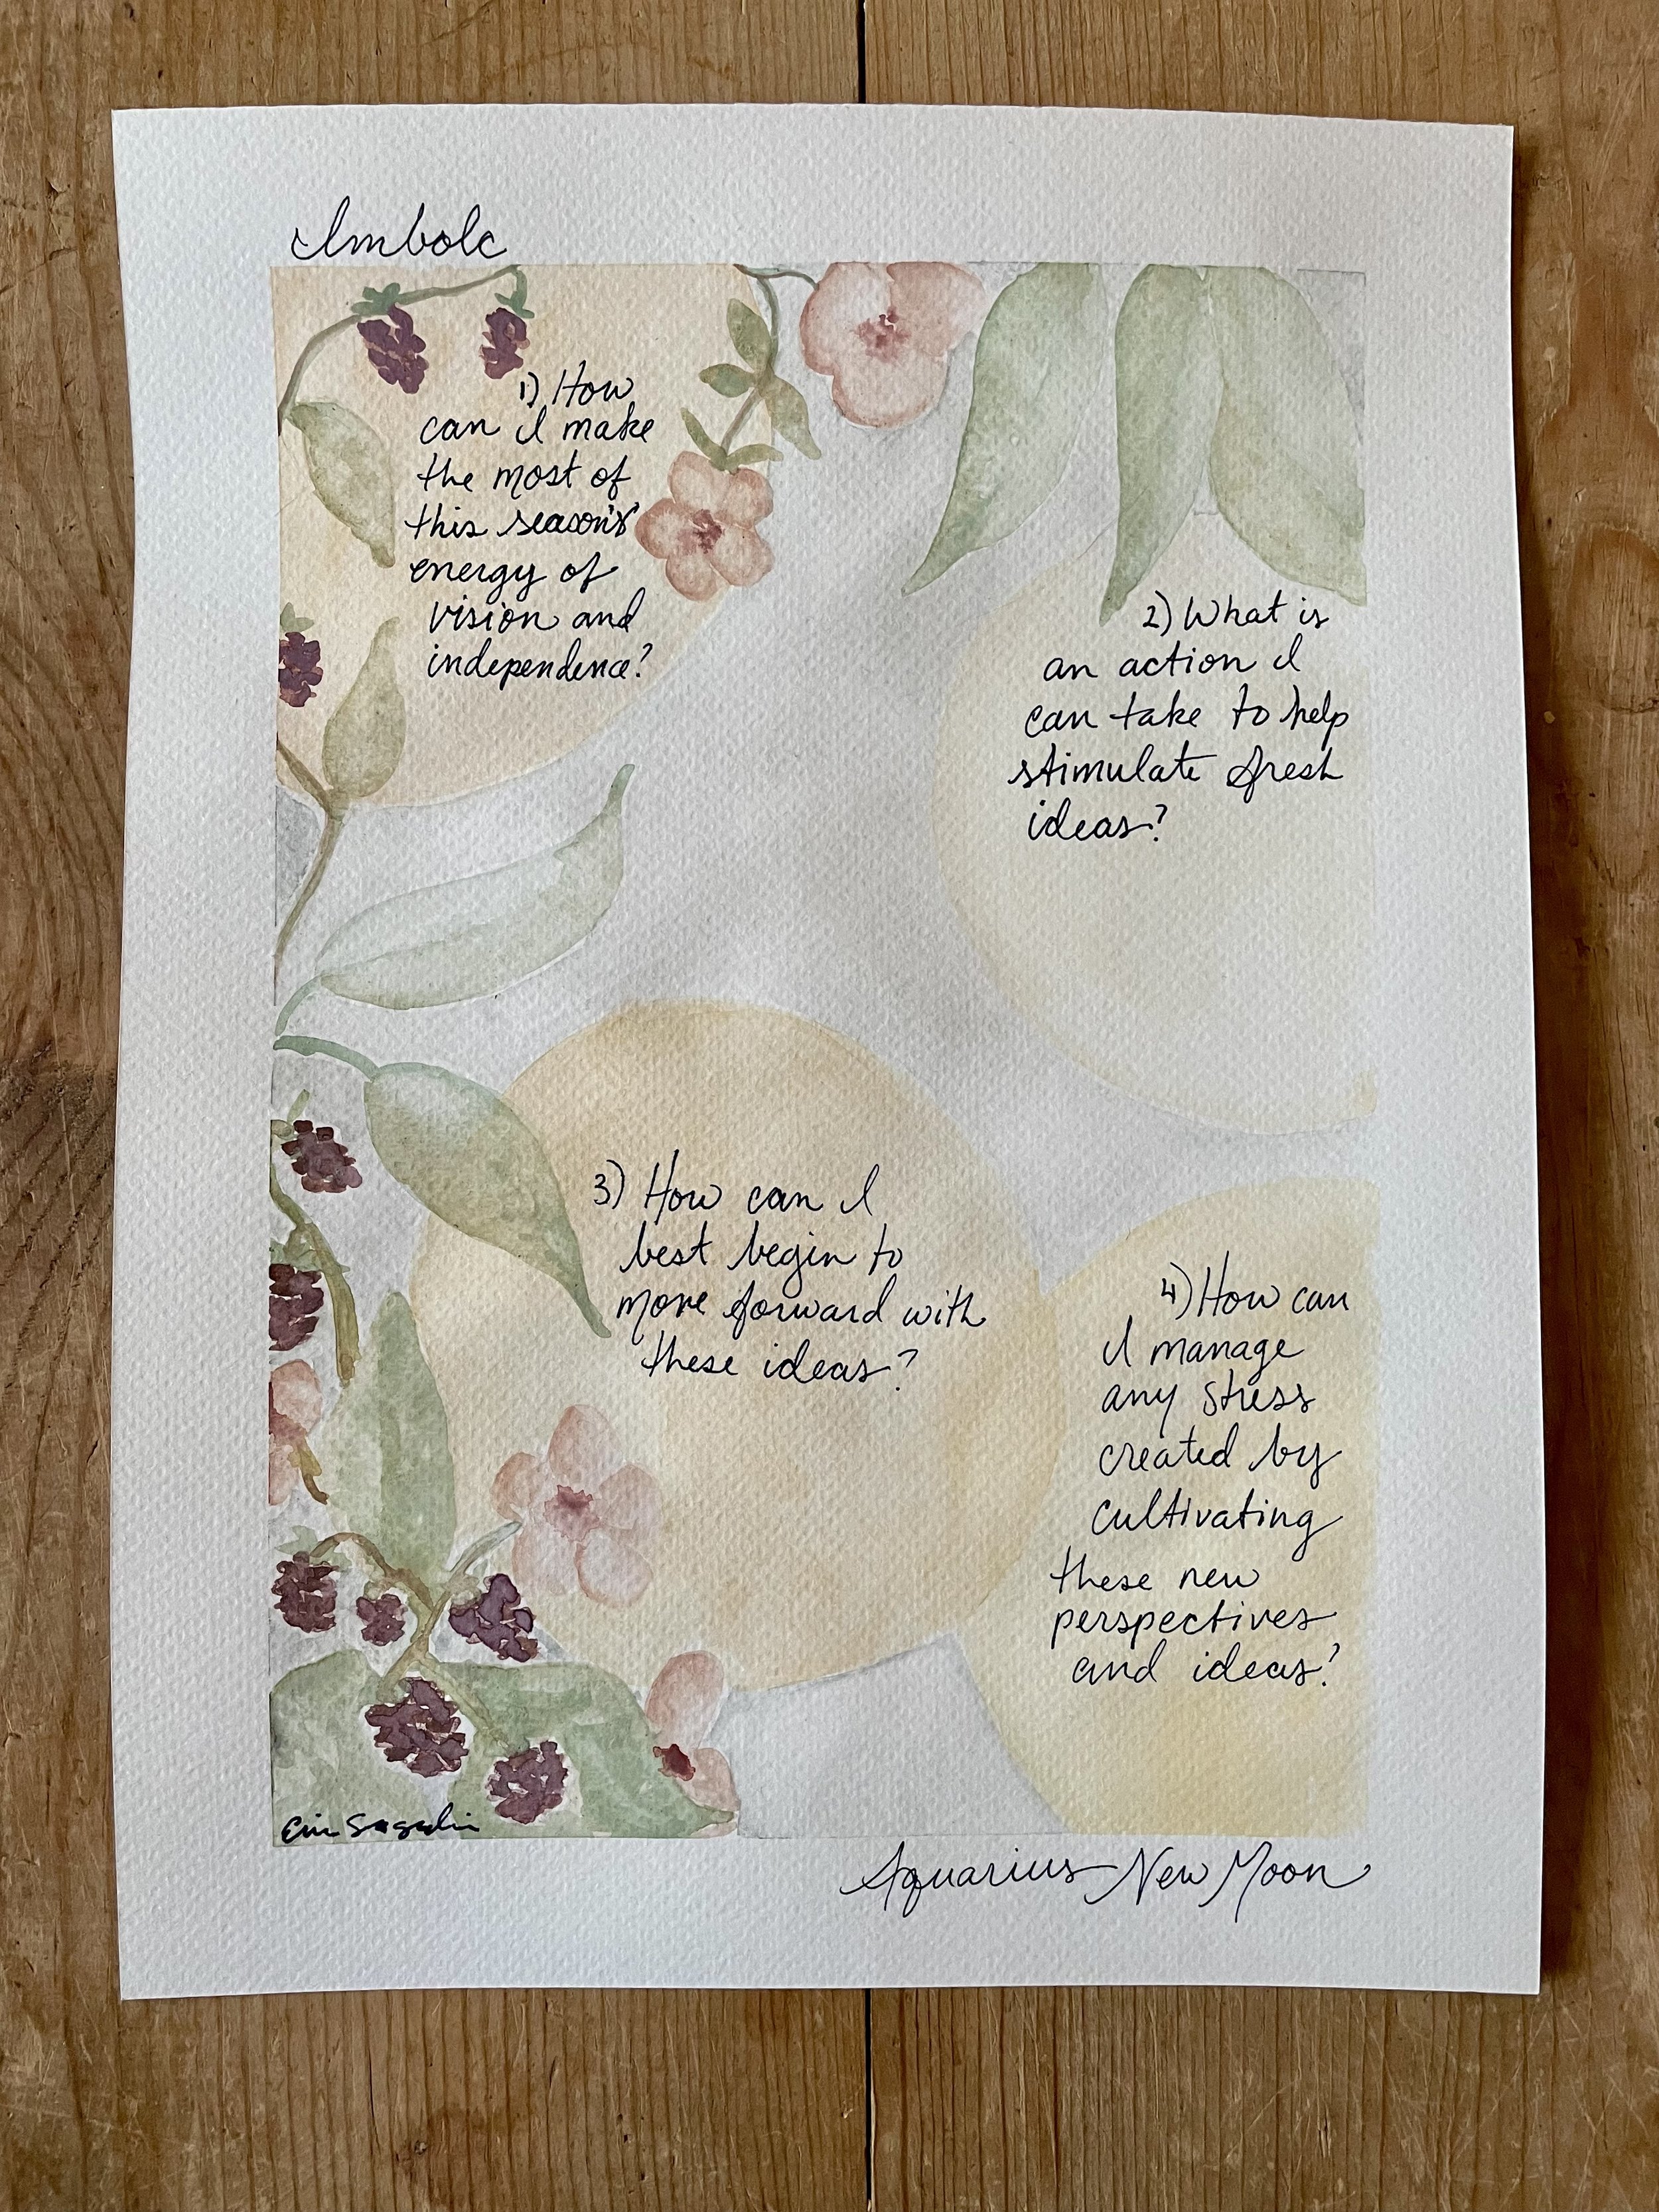 Imbolc
1) How
can I make
the most of
this season's
energy of
vision and
independence?
2) What is
an action I
can take to help
stimulate fresh
ideas?
3) How can I
best begin to
move forward with
these ideas?
4) How can
I manage
any stress
created by
cultivating
these new
perspectives
and ideas?
Aquarius New Moon